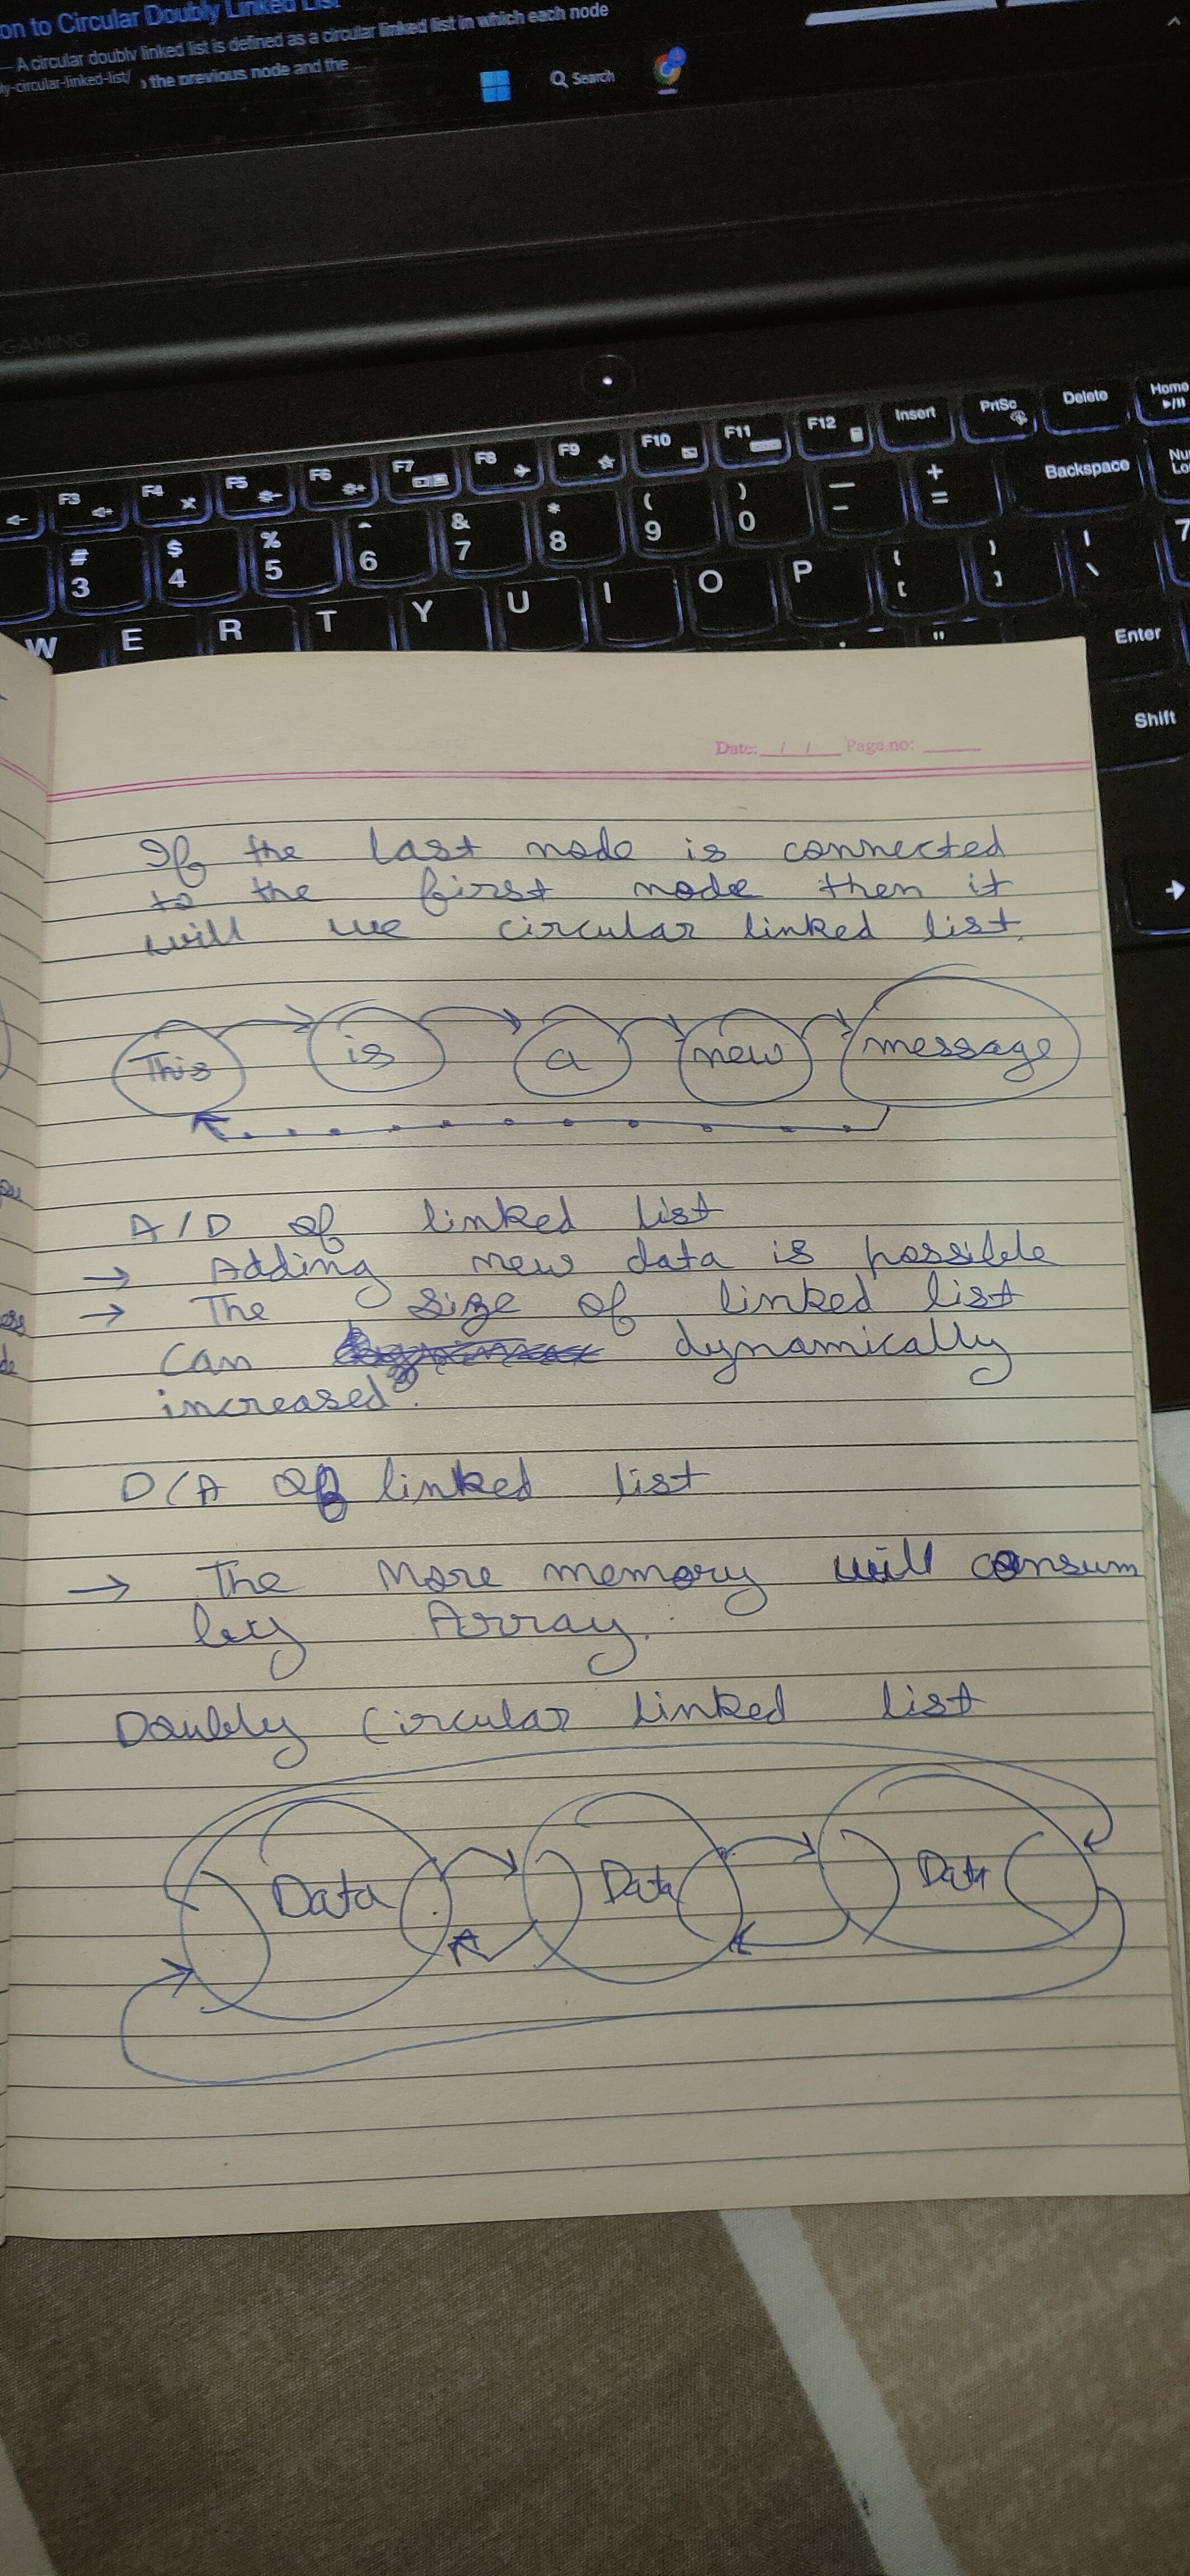 on to Circular Doubly Linked List
— A circular doubly linked list is defined as a circular linked list in which each node
ly-circular-linked-list/ the previous node and the ...
Search
GAMING
F3 F4 F5 F6 F7 F8 F9 F10 F11 F12 Insert PrtSc Delete Home
# 3 $ 4 % 5 ^ 6 & 7 * 8 ( 9 ) 0 — - + = Backspace
W E R T Y U I O P { [ } ] | \ 7
" Enter
Shift
Date: / / Page no:
If the last node is connected
to the first node then it
will we circular linked list.
This is a new message
A/D of linked list
→ Adding new data is possible
→ The size of linked list
can dynamically
increased.
D/A of linked list
→ The More memory will consum
by Array.
Doubly Circular linked list
Data Data Data